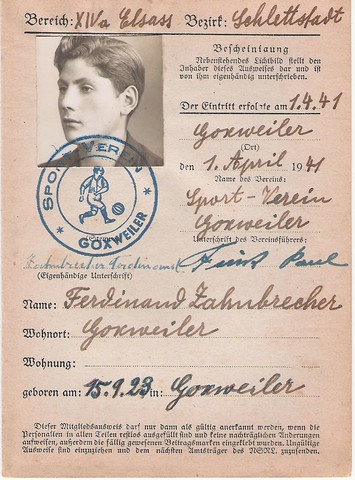 Bereich: XIVa Elsass Bezirk: Schlettstadt
Bescheinigung
Nebenstehendes Lichtbild stellt den
Inhaber dieses Ausweises dar und ist
von ihm eigenhändig unterschrieben.
Der Eintritt erfolgte am 1.4.41
Goxweiler
(Ort)
den 1. April 1941
Name des Vereins:
Sport-Verein
Goxweiler
SPORT VEREIN
GOXWEILER
Unterschrift des Vereinsführers:
Zahnbrecher Ferdinand
Paul
(Eigenhändige Unterschrift)
Name: Ferdinand Zahnbrecher
Wohnort: Goxweiler
Wohnung:
geboren am: 15.9.23 in: Goxweiler
Dieser Mitgliedsausweis darf nur dann als gültig anerkannt werden, wenn die
Personalien in allen Teilen restlos ausgefüllt sind und keine nachträglichen Änderungen
aufweisen, außerdem die fällig gewesenen Beitragsmarken eingeklebt wurden. Ungültige
Ausweise sind einzuziehen und dem nächsten Amtsträger des NSRL. zuzusenden.